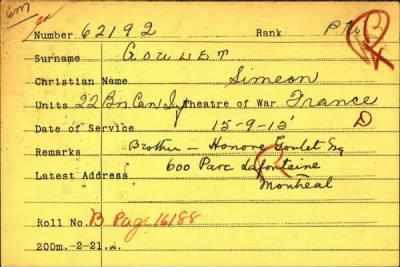 Em
Number 62192 Rank Pte
Surname GOULET
Christian Name Simeon
Units 22 Bn Can Inf Theatre of War France
Date of Service 15-9-15 D
Remarks Brother - Honore Goulet Esq
Latest Address 600 Parc Lafontaine
Montreal
Roll No. B Page 16188
200m.-2-21.